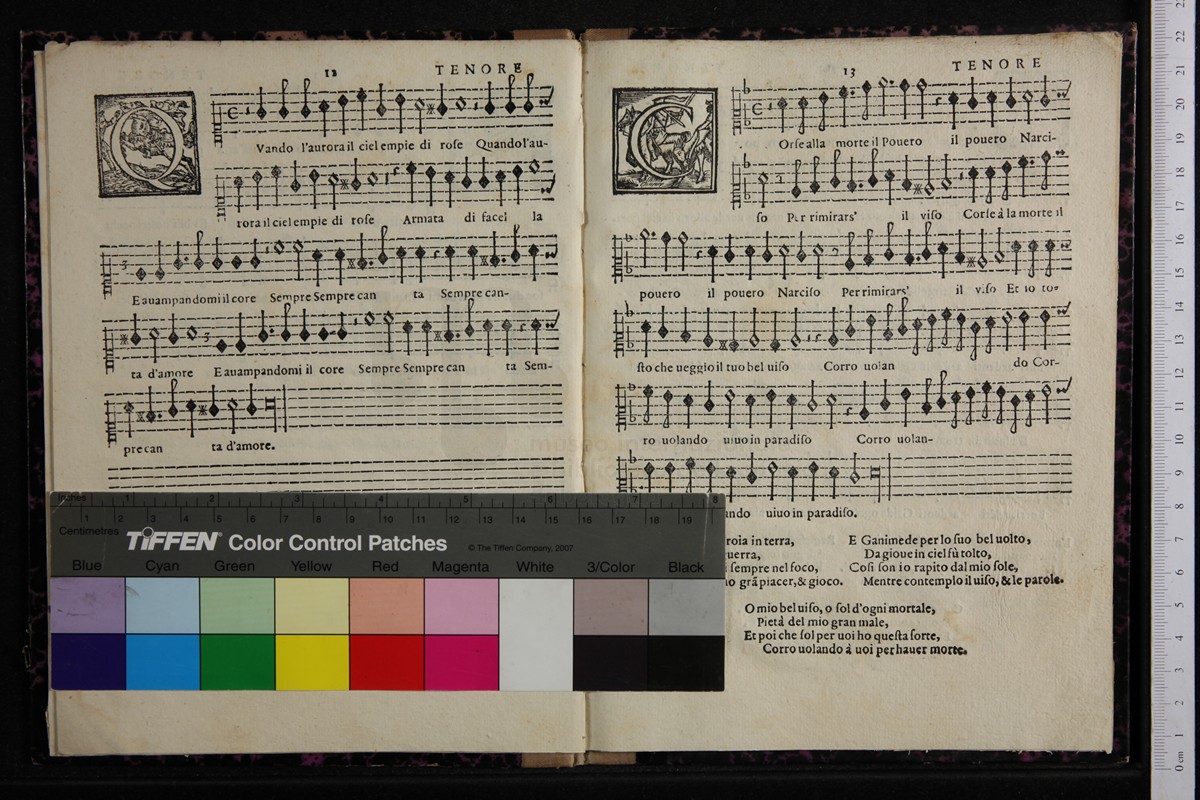 12
TENORE
Vando l'aurora il ciel empie di rose Quando l'au-
rora il ciel empie di rose Armata di facel la
E auampandomi il core Sempre Sempre can ta Sempre can-
ta d'amore E auampandomi il core Sempre Sempre can ta Sem-
pre can ta d'amore.
13
TENORE
Orse alla morte il Pouero il pouero Narci-
so Per rimirars' il viso Corse à la morte il
pouero il pouero Narciso Per rimirars' il viso Et io to-
sto che ueggio il tuo bel uiso Corro uolan do Cor-
ro uolando uiuo in paradiso Corro uolan-
ndo uiuo in paradiso.
roia in terra,
uerra,
i sempre nel foco,
o grã piacer, & gioco.
E Ganimede per lo suo bel uolto,
Da gioue in ciel fù tolto,
Cosi son io rapito dal mio sole,
Mentre contemplo il uiso, & le parole.
O mio bel uiso, o sol d'ogni mortale,
Pietà del mio gran male,
Et poi che sol per uoi ho questa sorte,
Corro uolando à uoi per hauer morte.
Inches 1 2 3 4 5 6 7 8
Centimetres 1 2 3 4 5 6 7 8 9 10 11 12 13 14 15 16 17 18 19
TIFFEN Color Control Patches © The Tiffen Company, 2007
Blue Cyan Green Yellow Red Magenta White 3/Color Black
22
21
20
19
18
17
16
15
14
13
12
11
10
9
8
7
6
5
4
3
2
1
0 cm